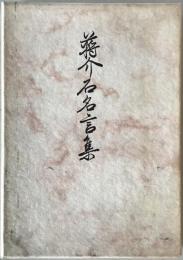 蒋介石名言集